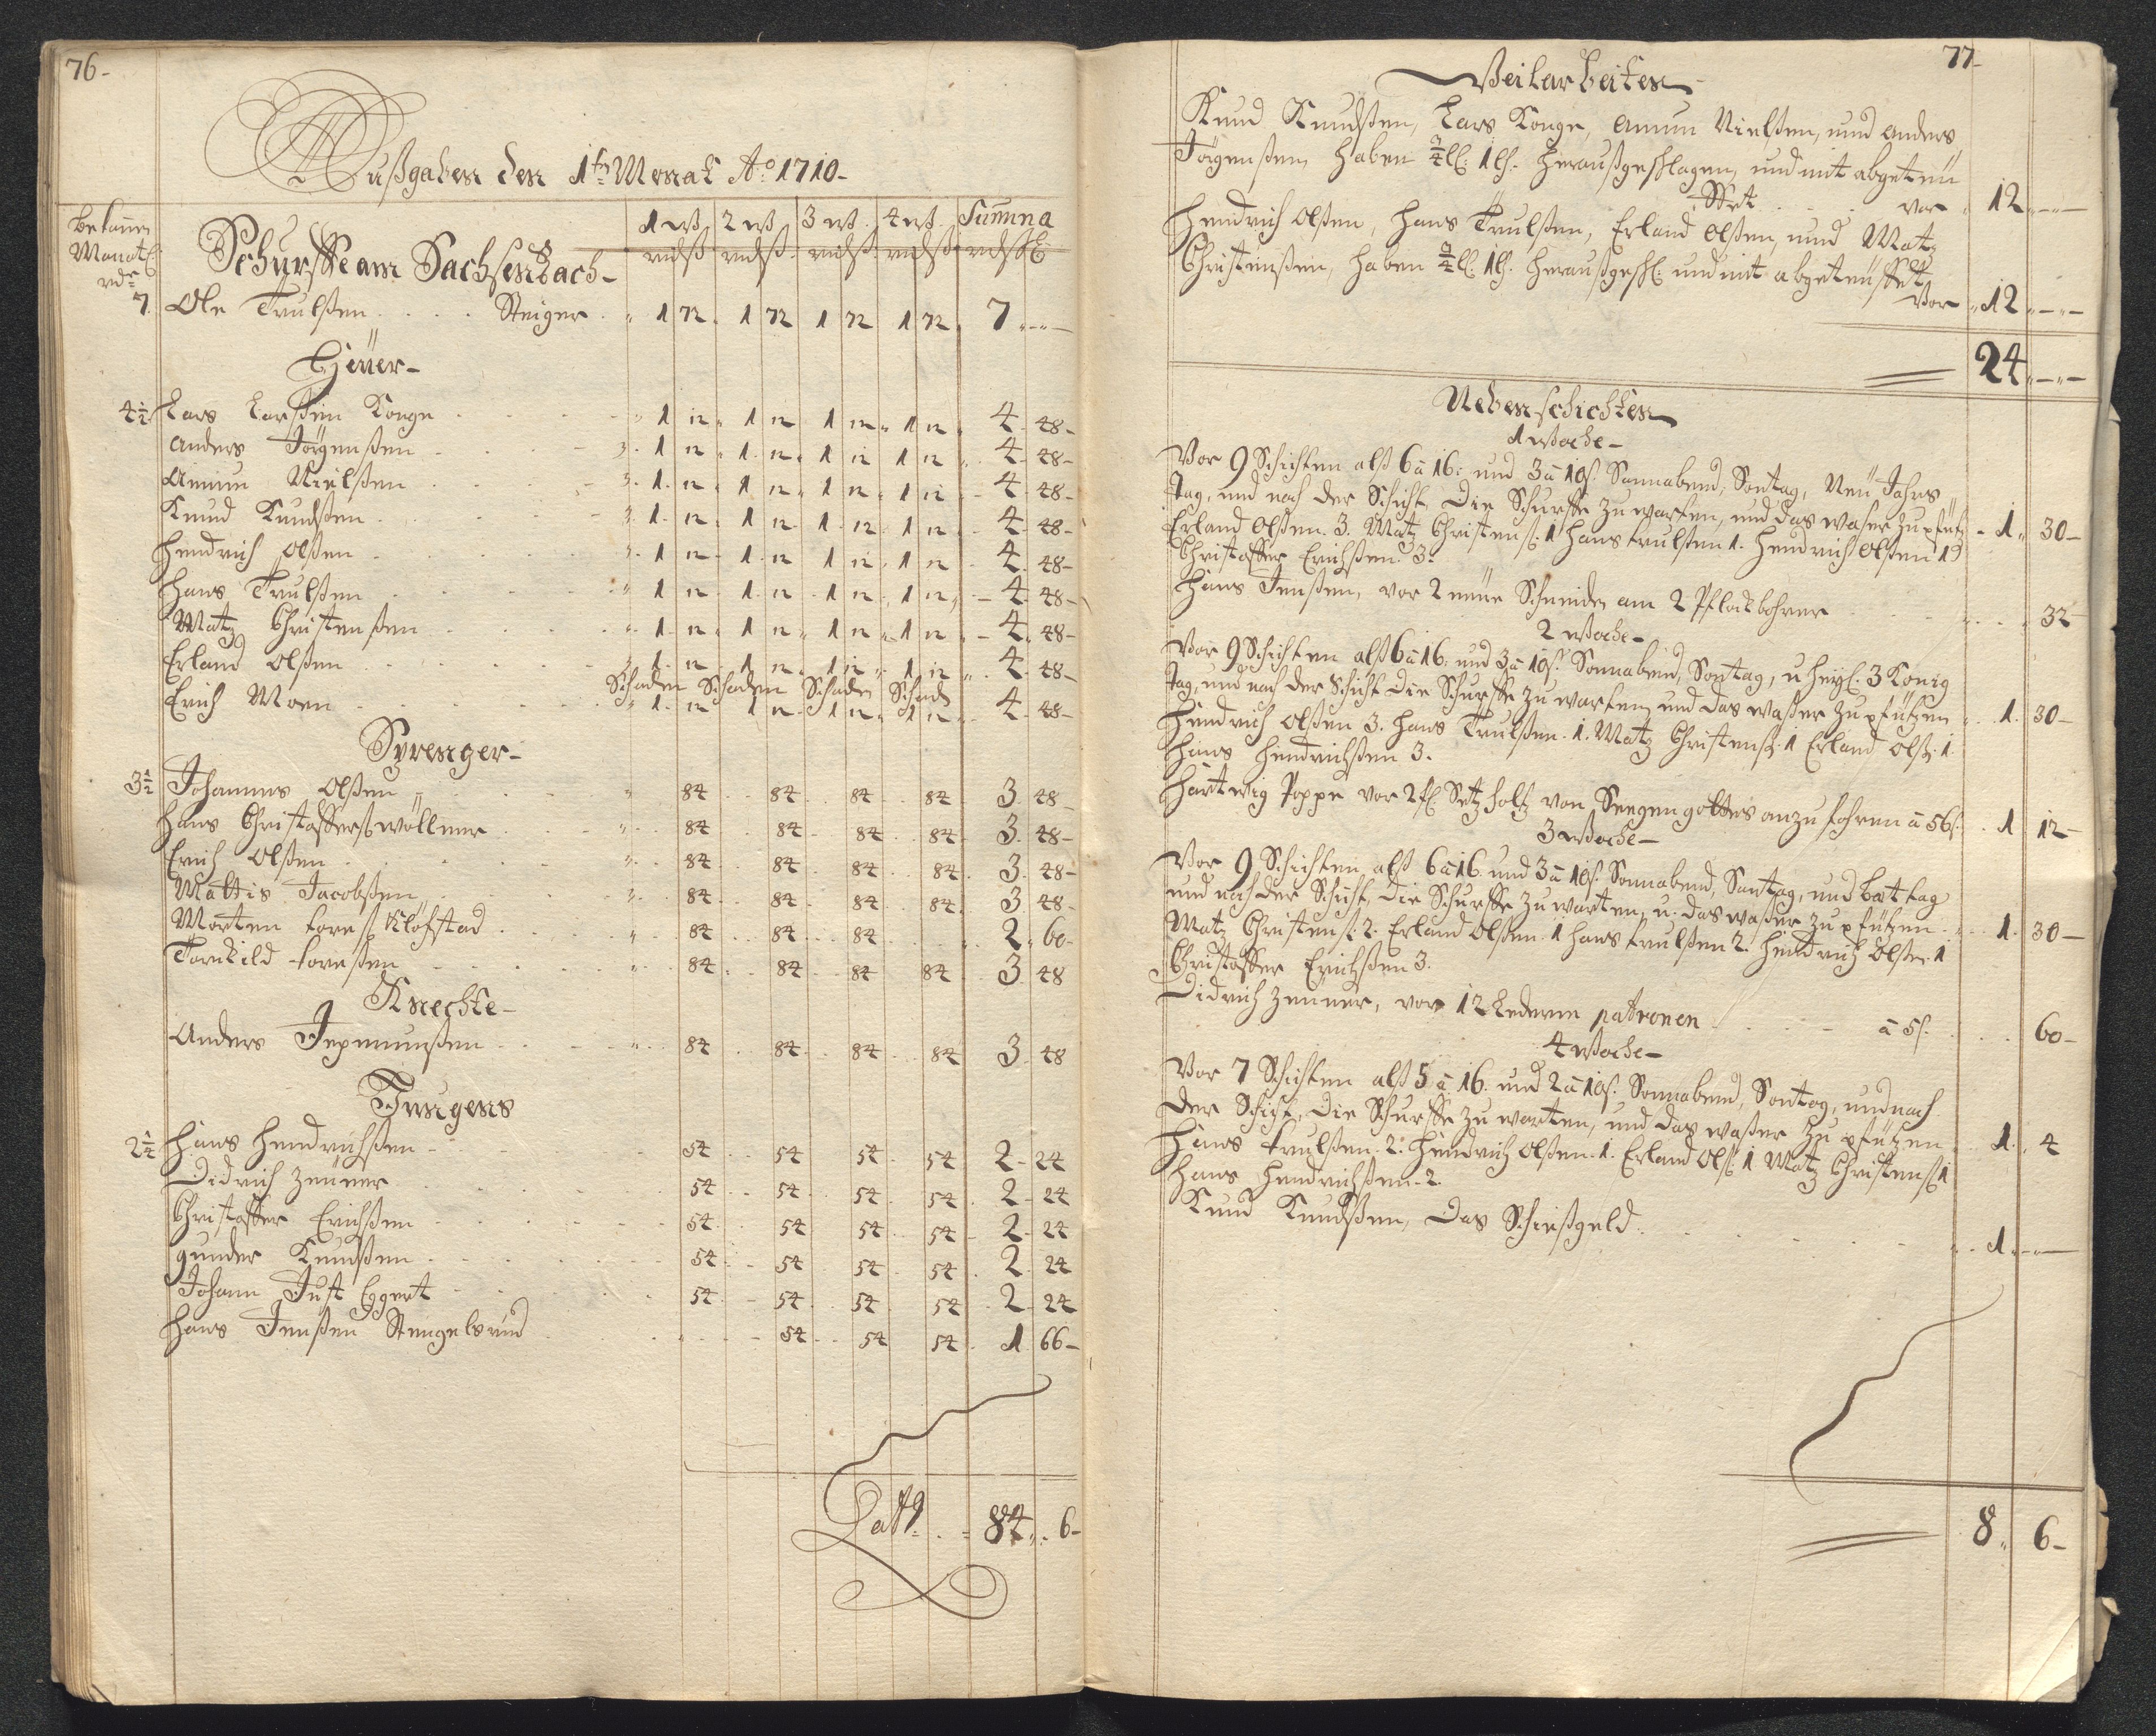 76-
Außgaben den 1ten Monat Ao 1710-
bekom̃en
Monatl:
rdr
1 w 2 w 3 w 4 w Sum̃a
rdß rdß rdß rdß rdß
Schurffe am Sachsenbach-
7 Ole Trulßen . . . . Steiger . " 1 72 . 1 72 1 72 1 72 . 7 " - " -
Heüer-
4½ Lars Larßen Konge 1 12 1 12 1 12 1 12 4 48-
Anders Jörgenßen 1 12 1 12 1 12 1 12 4 48-
Amun Nielßen 1 12 1 12 1 12 1 12 4 48-
Knud Knudßen 1 12 1 12 1 12 1 12 4 48-
Hendrich Olßen 1 12 1 12 1 12 1 12 4 48-
Hans Trulßen 1 12 1 12 1 12 1 12 4 48-
Matz Christenßen 1 12 1 12 1 12 1 12 4 48-
Erland Olßen 1 12 1 12 1 12 1 12 4 48-
Schaden Schaden Schaden Schad
Erich Moen 1 12 1 12 1 12 1 12 4 48-
Sprenger-
3½ Johannes Olßen 84 84 84 84 3 48-
Hans Christofferß wöllner 84 84 84 84 3 48-
Erich Olßen 84 84 84 84 3 48-
Mattis Jacobßen 84 84 84 84 3 48-
Morten Toreß Klöfstad 84 84 84 2 60-
Torkild Toreßen 84 84 84 84 3 48
Knechte-
Anders Jepmunßen 84 84 84 84 3 48
Jungens
2¼ Hans Hendrichßen 54 54 54 54 2 24
Didrich Zenner 54 54 54 54 2 24
Christoffer Erichßen 54 54 54 54 2 24
Gunder Knudßen 54 54 54 54 2 24
Johann Just Eggert 54 54 54 54 2 24
Hans Jenßen Stengelsrud 54 54 54 1 66-
Latg . . = 84 " . 6-
77-
Weilarbeiten
Knud Knudßen, Lars Konge, Amun Nielßen, und Anders
Jörgenßen haben ¾ll: 1lß. heraußgeschlagen, und mit abgeteü
ffet . . . vor . 12 " - " -
Hendrich Olßen, Hans Trulßen, Erland Olßen, und Matz
Christenßen, haben ¾ll: 1lß. heraußgeschl: und mit abgeteüffet
Vor " 12 " - " -
24 " - " -
Nebenschichten
1 Woche-
Vor 9 Schichten alß 6 â 16: und 3 â 10ß. Sonnabend, Sontag, Neü Jahrs
Tag, und nach der Schicht die Schurffe zu warten, und das waßer zu pfütz - 1 " 30-
Erland Olßen. 3. Matz Christenß: 1 Hans Trulßen 1. Hendrich Olßen 1
Christoffer Erichßen. 3.
Hans Jenßen, vor 2 neüe Schneiden am 2 Pflockbohrer . . . 32-
2 Woche-
Vor 9 Schichten alß 6 â 16: und 3 â 10ß. Sonnabend, Sontag, u. heyl: 3 König
Tag, und nach der Schicht die Schurffe zu warten, und das waßer zu pfützen . 1. 30-
Hendrich Olßen 3. Hans Trulßen. 1. Matz Christenß: 1 Erland Olß: 1
Hans Hendrichßen 3.
Hartwig Poppe vor 2 fl: Setzholtz von Seegen gottes anzufohren â 56ß. . 1 12-
3 Woche-
Vor 9 Schichten alß 6 â 16. und 3 â 10ß. Sonnabend, Sontag, und bættag
und nach der Schicht, die Schurffe zu warten, u. das waßer zu pfützen . . 1. 30-
Matz Christenß: 2. Erland Olßen. 1 Hans Trulßen 2. Hendrich Olßen 1
Christoffer Erichßen 3.
Didrich Zenner, vor 12 Lederne patronen . . . â 5ß. . . 60-
4 Woche-
Vor 7 Schichten alß 5 â 16. und 2 â 10ß. Sonnabend, Sontag, und nach
der Schicht, die Schurffe zu warten, und das waßer zu pfützen . . 1. 4
Hans Trulßen. 2. Hendrich Olßen. 1. Erland Olß: 1 Matz Christenß: 1
Hans Hendrichßen. 2.
Knud Knudßen, das Schießgeld . . . . 1. - " -
8 " 6-